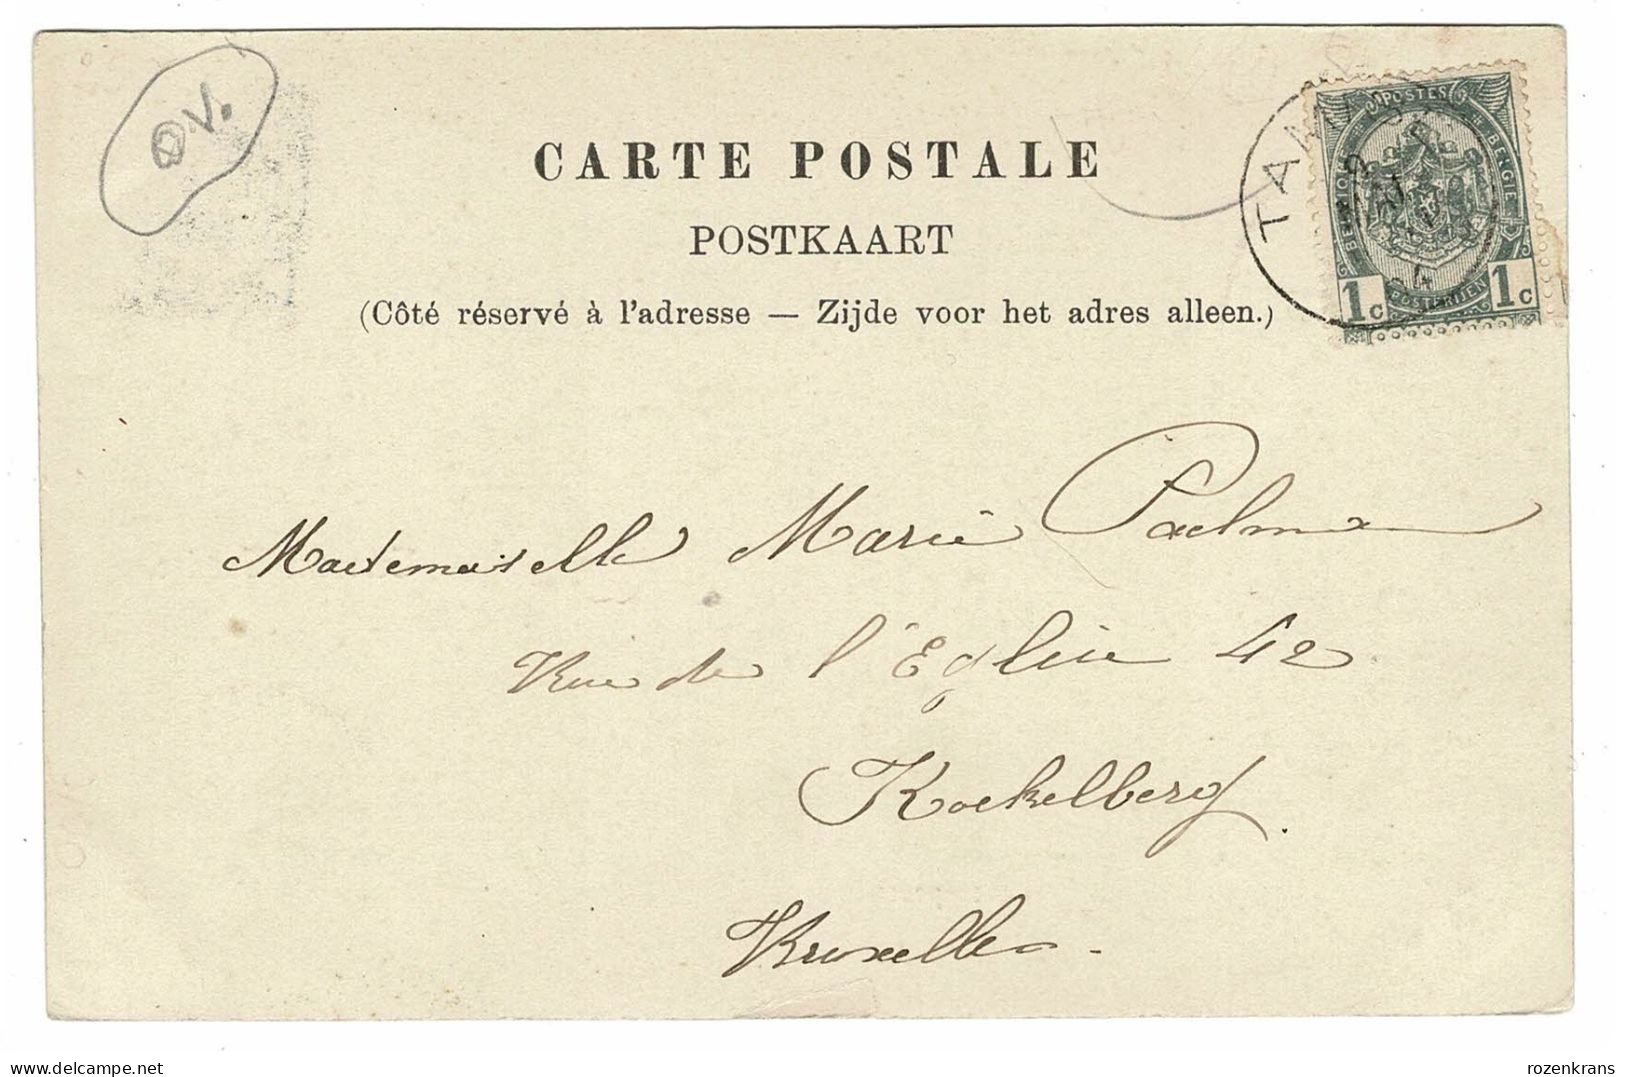 O.V.
CARTE POSTALE
POSTKAART
(Côté réservé à l'adresse — Zijde voor het adres alleen.)
POSTES
BELGIË
POSTERIJEN
1c 1c
04
Mademoiselle Marie Paelman
Rue de l'Église 42
Koekelberg.
Bruxelles.
delcampe.net
rozenkrans